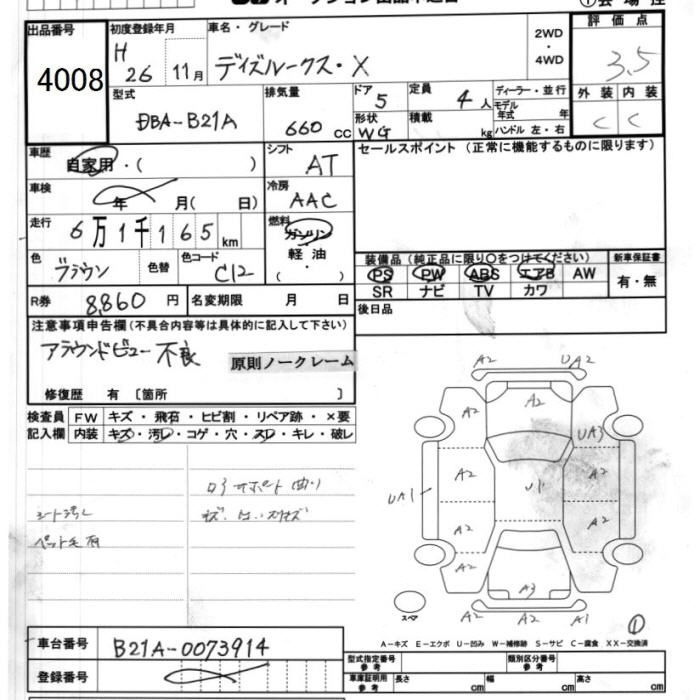 出品番号
4008
初度登録年月
H 26 11月
車名・グレード
デイズルークス・X
2WD
・
4WD
評価点
3.5
型式
DBA-B21A
排気量
660 cc
ドア 5
形状 WG
定員 4 人
積載 kg
ディーラー・並行
モデル
年式 年
ハンドル 左・右
外装 内装
C C
車歴
自家用・( )
シフト
AT
セールスポイント(正常に機能するものに限ります)
車検
年 月( 日)
冷房
AAC
走行
6万1千165km
燃料
ガソリン
軽油
( ・ )
色
ブラウン
色替
色コード
C12
装備品(純正品に限り○をつけてください)
PS PW ABS エアB AW
SR ナビ TV カワ
新車保証書
有・無
R券 8,860 円
名変期限 月 日
後日品
注意事項申告欄(不具合内容等は具体的に記入して下さい)
アラウンドビュー不良
原則ノークレーム
修復歴 有〔箇所 〕
検査員
記入欄
FW キズ・飛石・ヒビ割・リペア跡・×要
内装 キズ・汚レ・コゲ・穴・スレ・キレ・破レ
シート汚レ
A2 UA2
A2
A2 A2
UA3
A2 A2
UA1 U1
A2 A2
A2 A2
A3
A2 A2 A1
スペア
①
A-キズ E-エクボ U-凹み W-補修跡 S-サビ C-腐食 XX-交換済
車台番号
B21A-0073914
登録番号
型式指定番号
参考
類別区分番号
参考
車庫証明用
参考
長さ cm 幅 cm 高さ cm